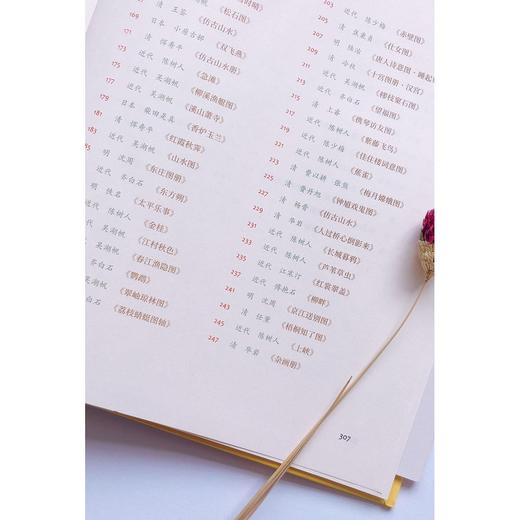 《松石图》
清 王鉴 《仿古山水》
169
日本 小原古邨 《双飞燕》
171
清 恽寿平 《仿古山水册》
173
近代 陈树人 《急滩》
175
近代 吴湖帆 《柳溪渔艇图》
177
近代 吴湖帆 《溪山萧寺》
179
日本 柴田是真 《香炉玉兰》
181
清 恽寿平 《红霞秋霁》
183
近代 吴湖帆 《山水图》
185
明 沈周 《东庄图册》
近代 齐白石 《东方朔》
明 佚名 《太平乐事》
近代 陈树人 《金桂》
吴湖帆 《江村秋色》
吴湖帆 《春江渔隐图》
陈树人 《鹦鹉》
吴湖帆 《翠岫琼林图》
齐白石 《荔枝蜻蜓图轴》
203
近代 陈少梅 《赤壁图》
205
清 《仕女图》
207
明 《唐人诗意图·
209
清 冷枚 《十宫图册·汉宫》
211
近代 吴湖帆
213
近代 齐白石 《望福图》
217
清 上睿 《携琴访友图》
219
近代 陈树人 《紫藤飞鸟》
221
近代 陈少梅 《佳住楼词意图》
223
近代 陈树人 《蕉雀》
225
清 费以耕 张熊 《梅月嫦娥图》
227
清 费丹旭 《钟馗戏鬼图》
229
清 杨晋 《仿古山水》
231
清 华嵒 《人过桥心倒影来》
233
近代 陈树人 《长城暮鸦》
235
近代 陈树人 《芦苇草虫》
237
近代 江寒汀 《红裳翠盖》
239
近代 傅抱石 《柳畔》
241
明 沈周 《京江送别图》
243
清 任薰 《梧桐知了图》
245
近代 陈树人 《上峡》
247
清 华嵒 《杂画册》
307